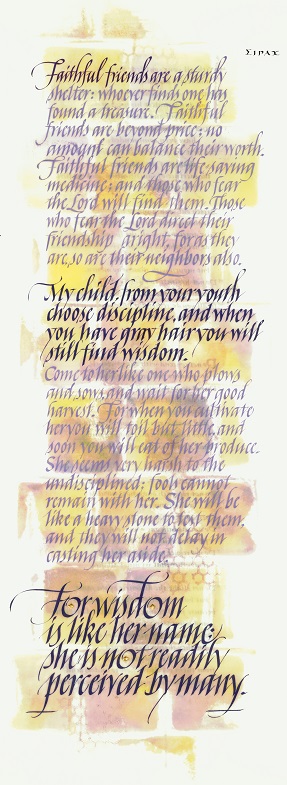 ΣΙΡΑΧ
Faithful friends are a sturdy
shelter: whoever finds one has
found a treasure. Faithful
friends are beyond price; no
amount can balance their worth.
Faithful friends are life-saving
medicine; and those who fear
the Lord will find them. Those
who fear the Lord direct their
friendship aright, for as they
are, so are their neighbors also.
My child, from your youth
choose discipline, and when
you have gray hair you will
still find wisdom.
Come to her like one who plows
and sows and wait for her good
harvest. For when you cultivate
her you will toil but little, and
soon you will eat of her produce.
She seems very harsh to the
undisciplined; fools cannot
remain with her. She will be
like a heavy stone to test them,
and they will not delay in
casting her aside.
For wisdom
is like her name;
she is not readily
perceived by many.